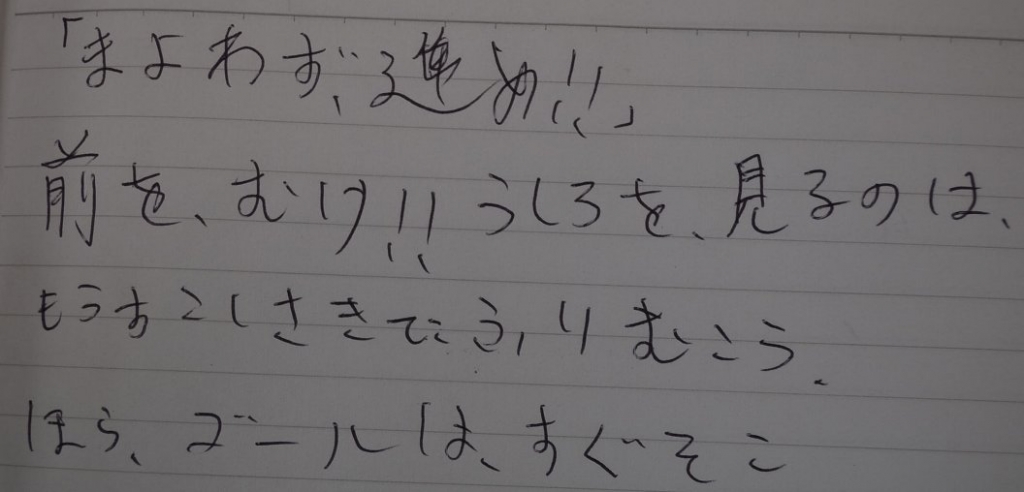 「まよわず、進め!!」
前を、むけ!!うしろを、見るのは、
もうすこしさきでふりむこう、
ほら、ゴールは、すぐそこ